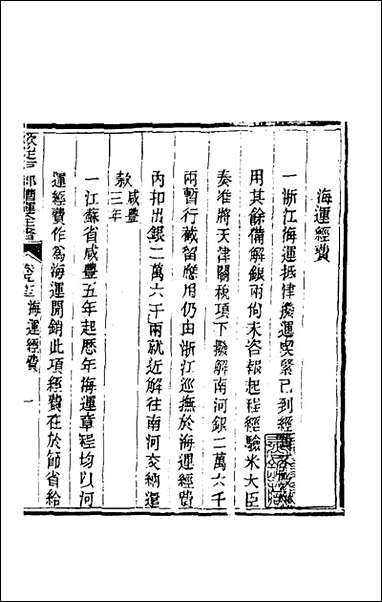 海運經費
一浙江海運抵津撥運喫緊已到經費
用其餘備解銀兩尚未咨報起程經驗米大臣
奏准將天津關稅項下撥解南河銀二萬六千
兩暫行截留應用仍由浙江巡撫於海運經費
內扣出銀二萬六千兩就近解往南河交納還
款 咸豐三年
一江蘇省咸豐五年起歷年海運章程均以河
運經費作為海運開銷此項經費在於節省給
欽定戶部漕運全書 海運經費 一